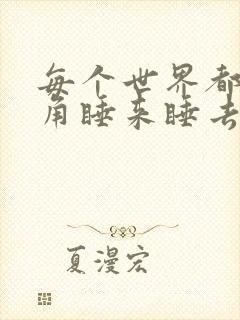 每个世界都
角睡来睡去
夏漫宏